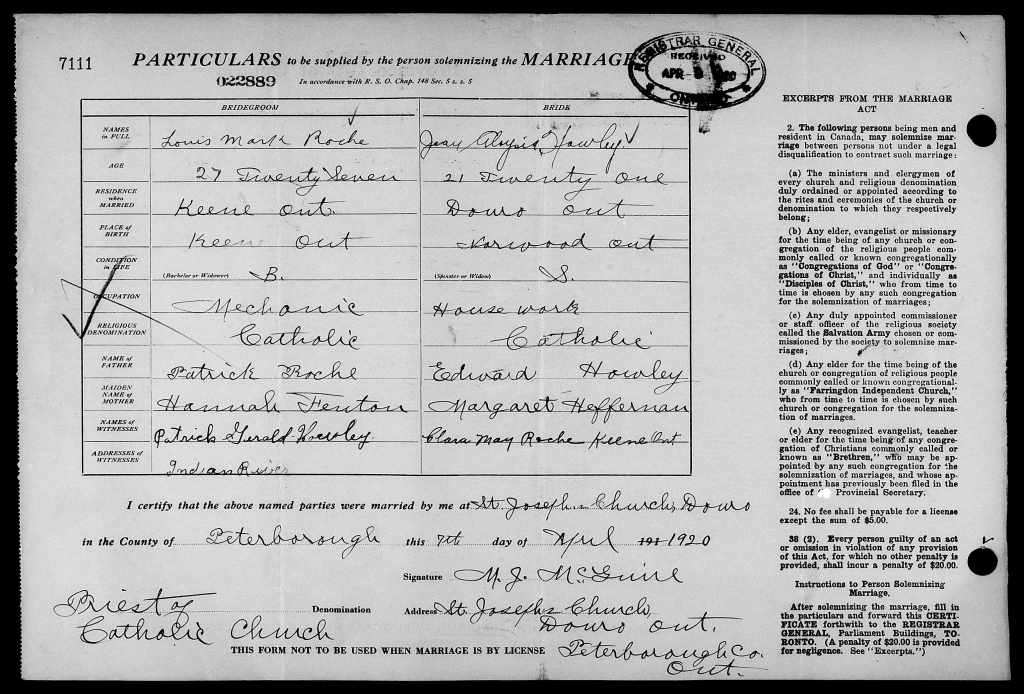 7111 PARTICULARS to be supplied by the person solemnizing the MARRIAGE
022889 In accordance with R. S. O. Chap. 148 Sec. 5 s. s. 5
REGISTRAR GENERAL
RECEIVED
APR
ONTARIO
BRIDEGROOM BRIDE
NAMES in FULL Louis Mark Roche Jean Aloysis Howley
AGE 27 Twenty Seven 21 Twenty One
RESIDENCE when MARRIED Keene Ont. Douro Ont
PLACE of BIRTH Keene Ont Norwood Ont
CONDITION in LIFE (Bachelor or Widower) B. (Spinster or Widow) S.
OCCUPATION Mechanic House work
RELIGIOUS DENOMINATION Catholic Catholic
NAME of FATHER Patrick Roche Edward Howley
MAIDEN NAME of MOTHER Hannah Fenton Margaret Heffernan
NAMES of WITNESSES Patrick Gerald Howley Clara May Roche Keene Ont
ADDRESSES of WITNESSES Indian River
I certify that the above named parties were married by me at St. Joseph's Church, Douro
in the County of Peterborough this 7th day of April 191 1920
Signature M. J. McGuire
Priest of Denomination Address St. Joseph's Church
Catholic Church Douro Ont.
THIS FORM NOT TO BE USED WHEN MARRIAGE IS BY LICENSE Peterborough Co.
Ont.
EXCERPTS FROM THE MARRIAGE
ACT
2. The following persons being men and
resident in Canada, may solemnize mar-
riage between persons not under a legal
disqualification to contract such marriage:
(a) The ministers and clergymen of
every church and religious denomination
duly ordained or appointed according to
the rites and ceremonies of the church or
denomination to which they respectively
belong;
(b) Any elder, evangelist or missionary
for the time being of any church or con-
gregation of the religious people com-
monly called or known congregationally
as "Congregations of God" or "Congre-
gations of Christ," and individually as
"Disciples of Christ," who from time to
time is chosen by any such congregation
for the solemnization of marriages;
(c) Any duly appointed commissioner
or staff officer of the religious society
called the Salvation Army chosen or com-
missioned by the society to solemnize mar-
riages;
(d) Any elder for the time being of the
church or congregation of religious people
commonly called or known congregational-
ly as "Farringdon Independent Church,"
who from time to time is chosen by such
church or congregation for the solemniza-
tion of marriages.
(e) Any recognized evangelist, teacher
or elder for the time being of any congre-
gation of Christians commonly called or
known as "Brethren," who may be ap-
pointed by any such congregation for the
solemnization of marriages, and whose ap-
pointment has previously been filed in the
office of Provincial Secretary.
24. No fee shall be payable for a license
except the sum of $5.00.
38 (2). Every person guilty of an act
or omission in violation of any provision
of this Act, for which no other penalty is
provided, shall incur a penalty of $20.00.
Instructions to Person Solemnizing
Marriage.
After solemnizing the marriage, fill in
the particulars and forward this CERTI-
FICATE forthwith to the REGISTRAR
GENERAL, Parliament Buildings, TO-
RONTO. (A penalty of $20.00 is provided
for negligence. See "Excerpts.")